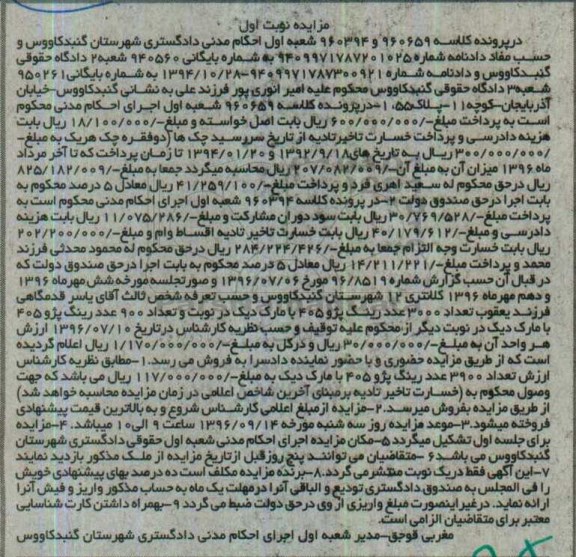 مزایده نوبت اول
درپرونده کلاسه ۹۶۰۶۵۹ و ۹۶۰۳۹۴ شعبه اول احکام مدنی دادگستری شهرستان گنبدکاووس و
حسب مفاد دادنامه شماره ۹۴۰۹۹۷۱۷۸۷۲۰۱۰۲۵ به شماره بایگانی ۹۴۰۵۶۰ شعبه۲ دادگاه حقوقی
گنبدکاووس و دادنامه شماره ۹۴۰۹۹۷۱۷۸۷۳۰۰۹۲۱-۱۳۹۴/۱۰/۲۸ به شماره بایگانی۹۵۰۲۶۱
شعبه۳ دادگاه حقوقی گنبدکاووس محکوم علیه امیر انوری پور فرزند علی به نشانی گنبدکاووس-خیابان
آذربایجان-کوچه۱۱-پلاک۵۵، ۱-درپرونده کلاسه ۹۶۰۶۵۹ شعبه اول اجرای احکام مدنی محکوم
است به پرداخت مبلغ-/۶۰۰/۰۰۰/۰۰۰ ریال بابت اصل خواسته و مبلغ-/۱۸/۱۰۰/۰۰۰ ریال بابت
هزینه دادرسی و پرداخت خسارت تاخیرتادیه از تاریخ سررسید چک ها (دوفقره چک هریک به مبلغ-
/۳۰۰/۰۰۰/۰۰۰ ریال به تاریخ های۱۳۹۲/۹/۱۸ و ۱۳۹۴/۰۱/۲۰ تا زمان پرداخت که تا آخر مرداد
ماه ۱۳۹۶ میزان آن به مبلغ آن-/۲۰۷/۰۸۲/۰۰۹ ریال محاسبه میگردد جمعا به مبلغ-/۸۲۵/۱۸۲/۰۰۹
ریال درحق محکوم له سعید اهری فرد و پرداخت مبلغ-/۴۱/۲۵۹/۱۰۰ ریال معادل ۵ درصد محکوم به
بابت اجرا درحق صندوق دولت ۲-در پرونده کلاسه ۹۶۰۳۹۴ شعبه اول اجرای احکام مدنی محکوم است به
پرداخت مبلغ-/۳۰/۷۶۹/۵۲۸ ریال بابت سود دوران مشارکت و مبلغ-/۱۱/۰۷۵/۲۸۶ ریال بابت هزینه
دادرسی و مبلغ-/۴۰/۱۷۹/۶۱۲ ریال بابت خسارت تاخیر تادیه اقساط وام و مبلغ-/۲۰۲/۲۰۰/۰۰۰
ریال بابت خسارت وجه التزام جمعا به مبلغ-/۲۸۴/۲۲۴/۴۲۶ ریال درحق محکوم له محمود محدثی فرزند
محمد و پرداخت مبلغ-/۱۴/۲۱۱/۲۲۱ ریال معادل ۵ درصد محکوم به بابت اجرا درحق صندوق دولت که
در قبال آن حسب گزارش شماره ۹۶/۸۵۱۹ مورخ ۱۳۹۶/۰۷/۰۶ و صورتجلسه مورخه شش مهرماه ۱۳۹۶
و دهم مهرماه ۱۳۹۶ کلانتری ۱۲ شهرستان گنبدکاووس و حسب تعرفه شخص ثالث آقای یاسر قدمگاهی
فرزند یعقوب تعداد ۳۰۰۰ عدد رینگ پژو ۴۰۵ با مارک دیک در نوبت و تعداد ۹۰۰ عدد رینگ پژو ۴۰۵
با مارک دیک در نوبت دیگر از محکوم علیه توقیف و حسب نظریه کارشناس درتاریخ ۱۳۹۶/۰۷/۱۰ ارزش
هر واحد آن به مبلغ-/۳۰۰/۰۰۰ ریال و درکل به مبلغ-/۱/۱۷۰/۰۰۰/۰۰۰ ریال اعلام گردیده
است که از طریق مزایده حضوری و با حضور نماینده دادسرا به فروش می رسد. ۱-مطابق نظریه کارشناس
ارزش تعداد ۳۹۰۰ عدد رینگ پژو ۴۰۵ با مارک دیک به مبلغ-/۱۱۷/۰۰۰/۰۰۰ ریال می باشد که جهت
وصول محکوم به (خسارت تاخیر تادیه برمبنای آخرین شاخص اعلامی در زمان مزایده محاسبه خواهد شد)
از طریق مزایده بفروش میرسد. ۲-مزایده ازمبلغ اعلامی کارشناس شروع و به بالاترین قیمت پیشنهادی
فروخته میشود. ۳-موعد مزایده روز سه شنبه مورخه ۱۳۹۶/۰۹/۱۴ ساعت ۹ الی ۱۰ میباشد. ۴-مزایده
برای جلسه اول تشکیل میگردد ۵-مکان مزایده اجرای احکام مدنی شعبه اول حقوقی دادگستری شهرستان
گنبدکاووس می باشد ۶-متقاضیان می توانند پنج روزقبل ازتاریخ مزایده از ملک مذکور بازدید نمایند
۷-این آگهی فقط دریک نوبت منتشر می گردد. ۸-برنده مزایده مکلف است ده درصد بهای پیشنهادی خویش
را فی المجلس به صندوق دادگستری تودیع و الباقی آنرا درمهلت یک ماه به حساب مذکور واریز و فیش آنرا
ارائه نماید. درغیراینصورت مبلغ واریزی از وی درحق دولت ضبط می گردد ۹-بهمراه داشتن کارت شناسایی
معتبر برای متقاضیان الزامی است.
مغربی قوجق-مدیر شعبه اول اجرای احکام مدنی دادگستری شهرستان گنبدکاووس